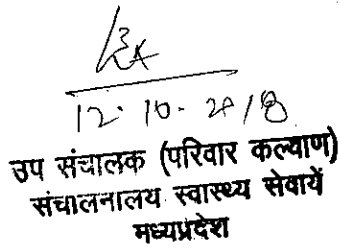 12.10.2018
उप संचालक (परिवार कल्याण)
संचालनालय स्वास्थ्य सेवायें
मध्यप्रदेश